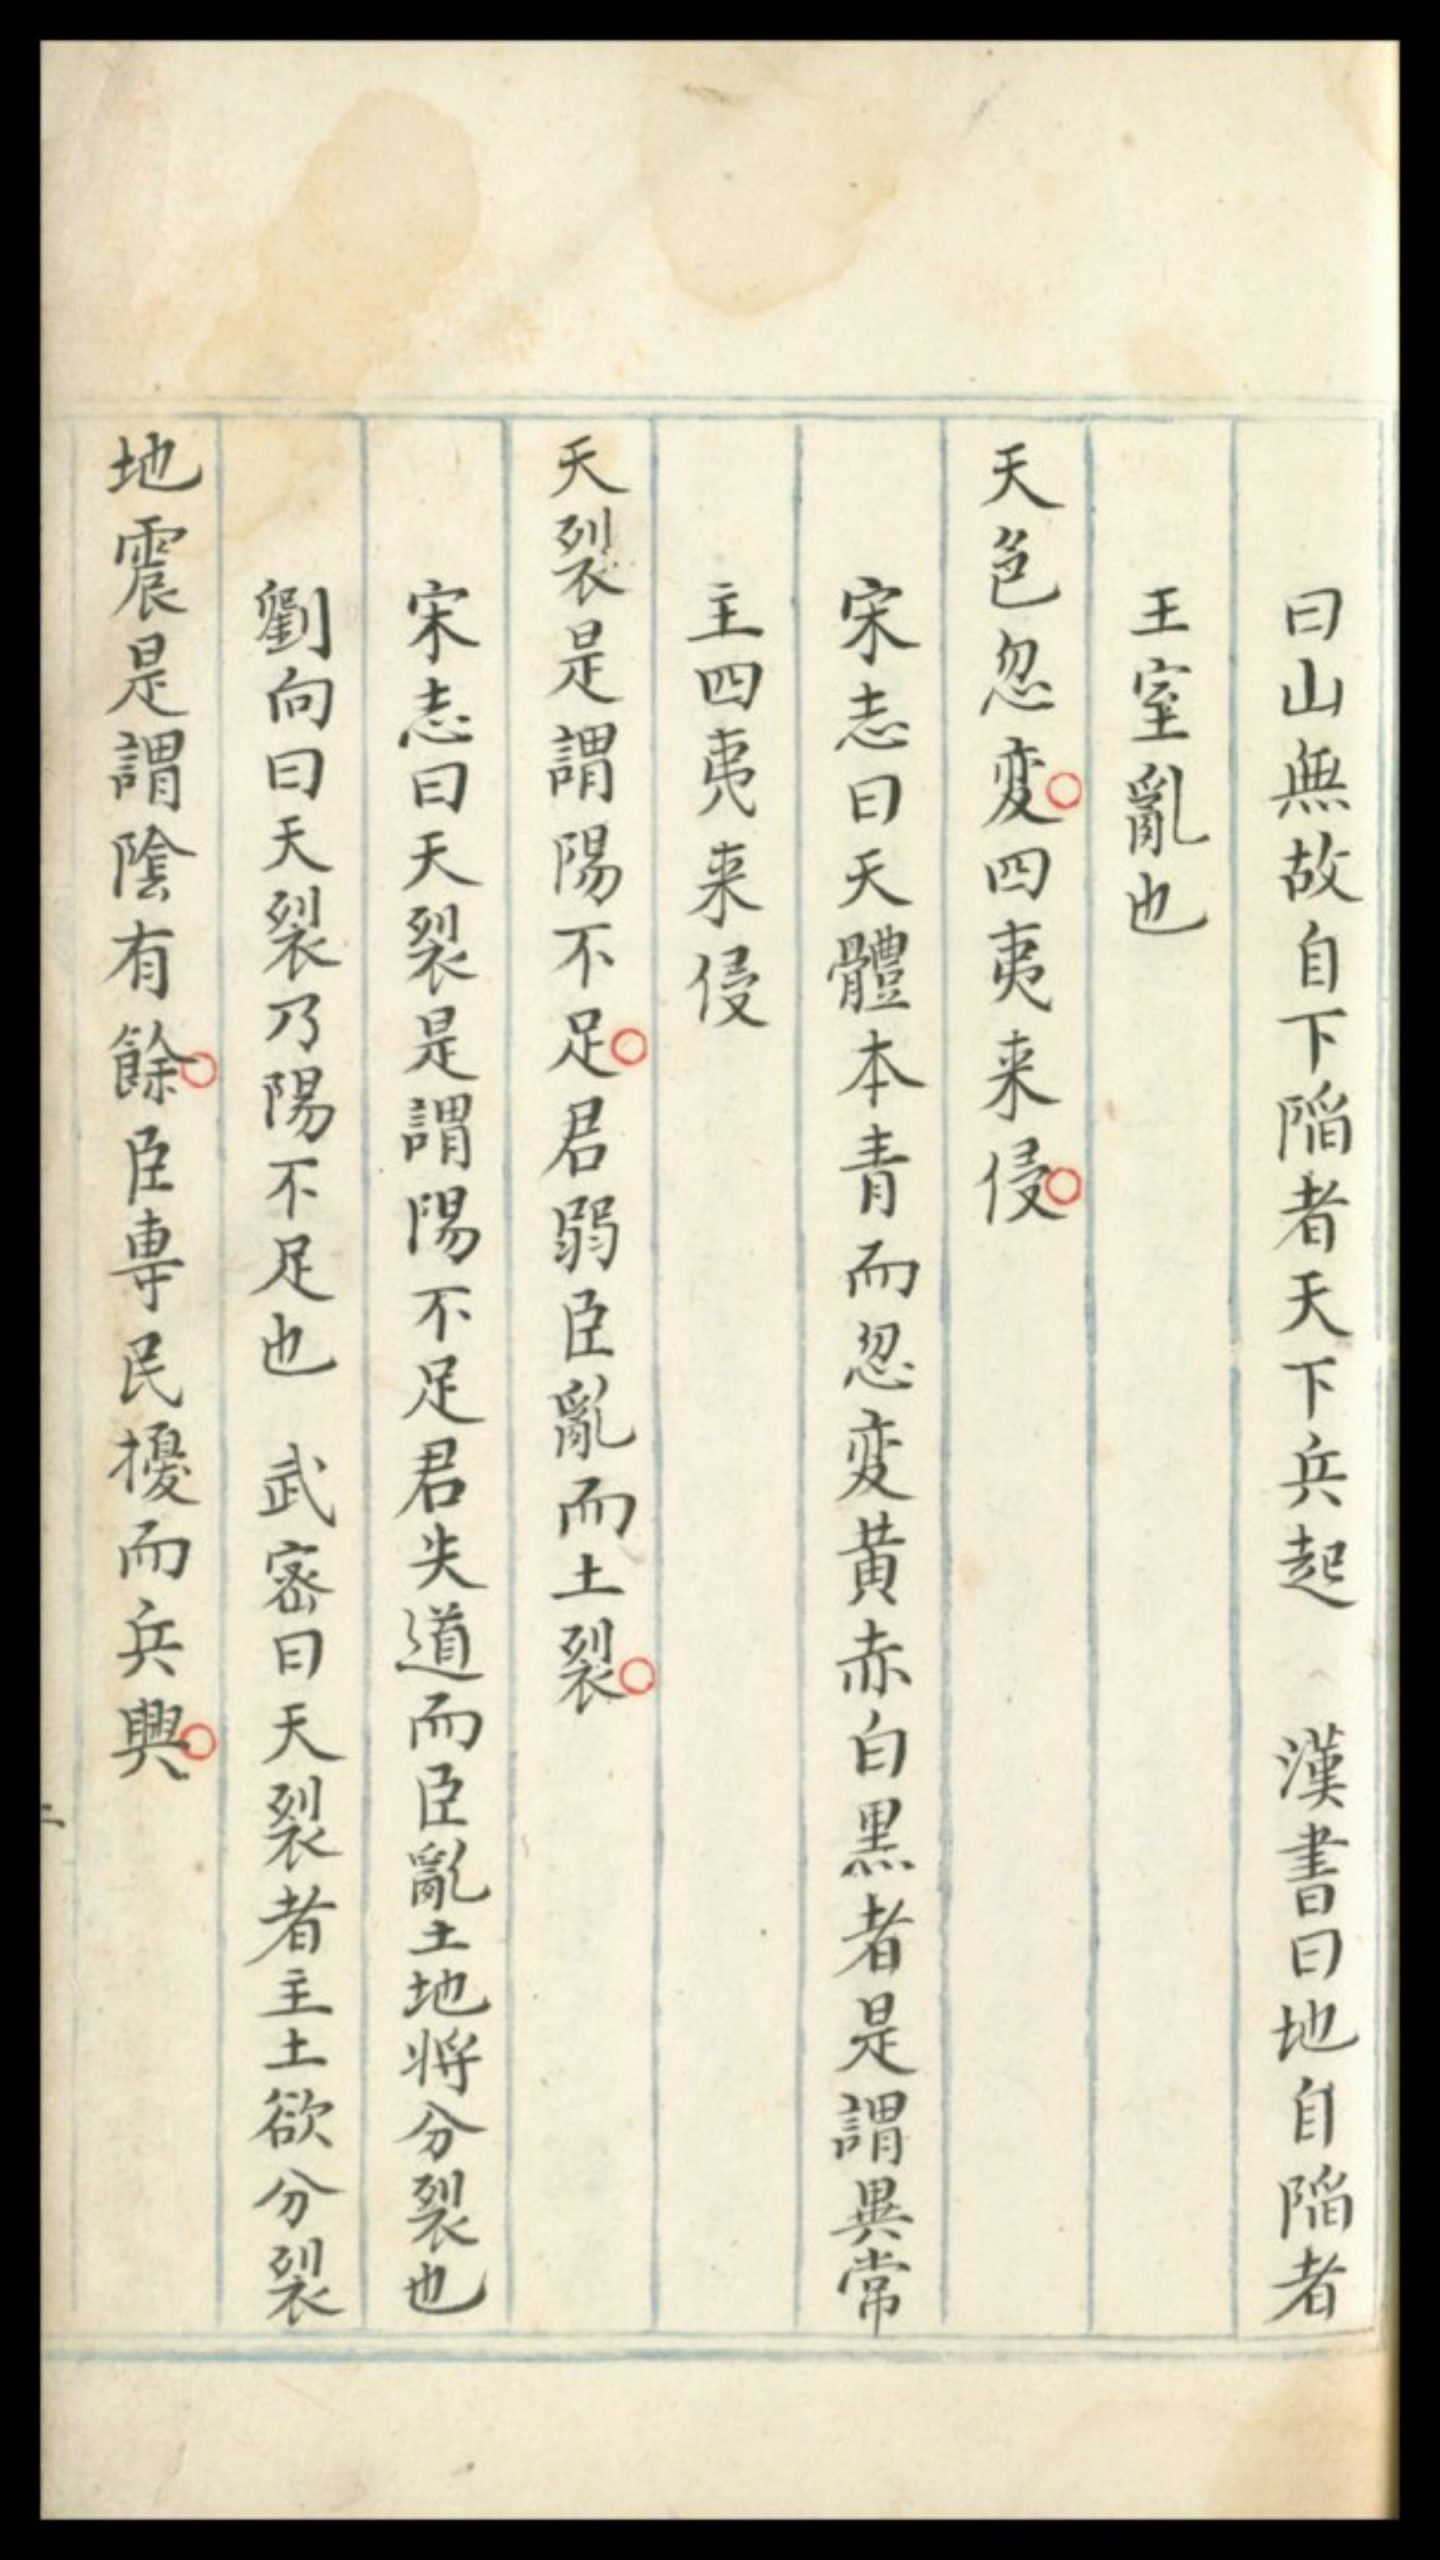 曰山無故自下陷者天下兵起　漢書曰地自陷者
王室亂也
天色忽变○四夷来侵○
宋志曰天體本青而忽变黃赤白黑者是謂異常
主四夷来侵
天裂是謂陽不足○君弱臣亂而土裂○
宋志曰天裂是謂陽不足君失道而臣亂土地将分裂也
劉向曰天裂乃陽不足也　武密曰天裂者主土欲分裂
地震是謂陰有餘○臣專民擾而兵興○
二